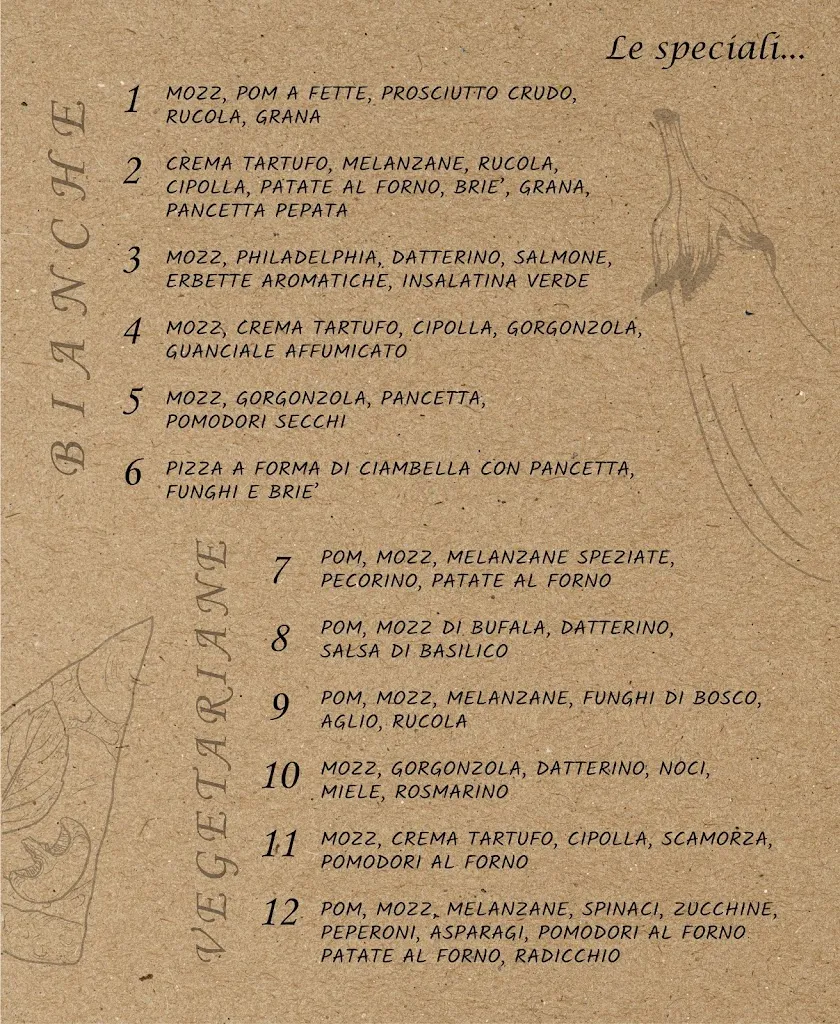 Le speciali...
BIANCHE
1 MOZZ, POM A FETTE, PROSCIUTTO CRUDO,
RUCOLA, GRANA
2 CREMA TARTUFO, MELANZANE, RUCOLA,
CIPOLLA, PATATE AL FORNO, BRIE', GRANA,
PANCETTA PEPATA
3 MOZZ, PHILADELPHIA, DATTERINO, SALMONE,
ERBETTE AROMATICHE, INSALATINA VERDE
4 MOZZ, CREMA TARTUFO, CIPOLLA, GORGONZOLA,
GUANCIALE AFFUMICATO
5 MOZZ, GORGONZOLA, PANCETTA,
POMODORI SECCHI
6 PIZZA A FORMA DI CIAMBELLA CON PANCETTA,
FUNGHI E BRIE'
VEGETARIANE
7 POM, MOZZ, MELANZANE SPEZIATE,
PECORINO, PATATE AL FORNO
8 POM, MOZZ DI BUFALA, DATTERINO,
SALSA DI BASILICO
9 POM, MOZZ, MELANZANE, FUNGHI DI BOSCO,
AGLIO, RUCOLA
10 MOZZ, GORGONZOLA, DATTERINO, NOCI,
MIELE, ROSMARINO
11 MOZZ, CREMA TARTUFO, CIPOLLA, SCAMORZA,
POMODORI AL FORNO
12 POM, MOZZ, MELANZANE, SPINACI, ZUCCHINE,
PEPERONI, ASPARAGI, POMODORI AL FORNO
PATATE AL FORNO, RADICCHIO